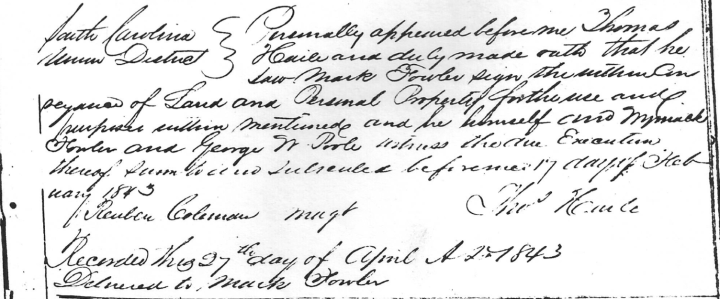 South Carolina } Personally appeared before me Thomas
Union District } Haile and duly made oath that he
saw Mark Fowler sign the within Con
veyance of Land and Personal Property for the use and
purposes within mentioned and he himself and Wymack
Fowler and George W Poole witness the due Execution
thereof Sworn to and subscribed before me 17 day of Feb
uary 1843
Reuben Coleman magt Thos Haile
Recorded this 27th day of April A D 1843
Delivered to Mark Fowler